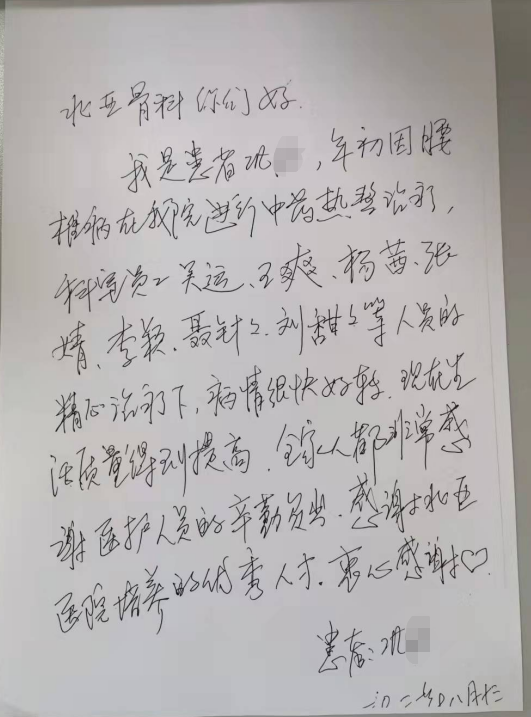 北亚骨科你们好.
我是患者巩 ,年初因腰
椎病在我院进行中药热熨治疗,
科室员工关运、王爽、杨茜、张
婧、李颖、聂针々、刘甜々等人员的
精心治疗下,病情很快好转.现在生
活质量得到提高.全家人都非常感
谢医护人员的辛勤付出.感谢北亚
医院培养的优秀人才.衷心感谢♡.
患者:巩
八月